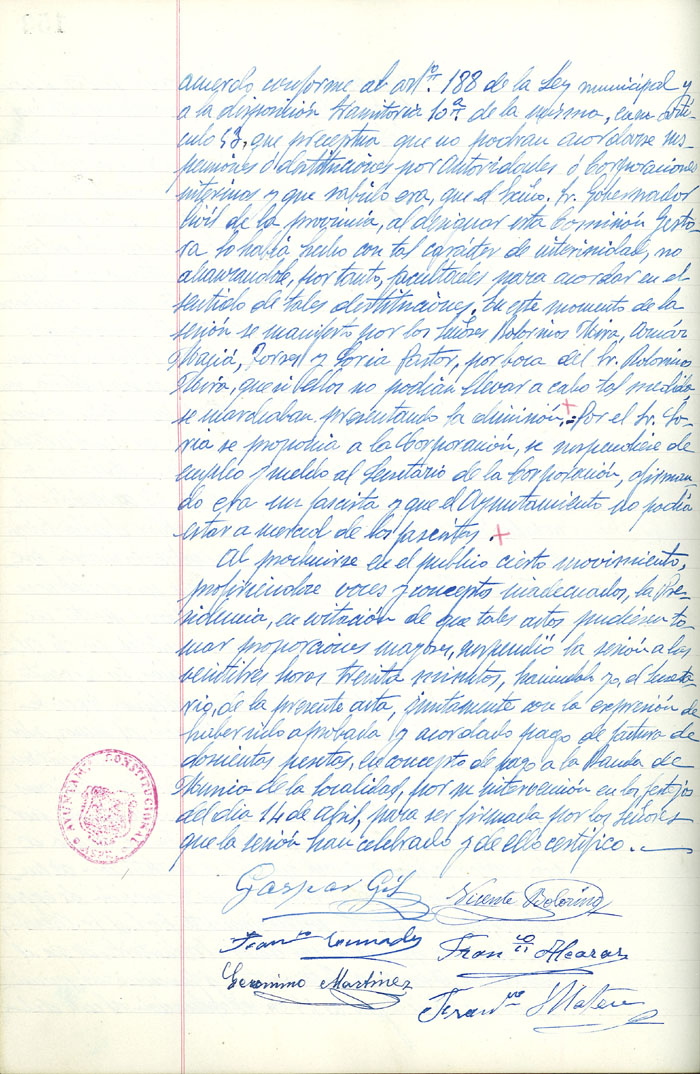 acuerdo, conforme al artº. 188 de la Ley municipal y
a la disposición transitoria 10ª de la misma, en su artí-
culo 53, que preceptua que no podran acordarse sus-
pensiones ó destituciones por Autoridades ó Corporaciones
interinas y que sabido era, que el Exmo. Sr. Gobernador
Civil de la provincia, al designar esta Comisión Gesto-
ra, lo había hecho con tal carácter de interinidad, no
alcanzandole, por tanto, facultades para acordar en el
sentido de tales destituciones. En este momento de la
sesión se manifestó por los Señores Bolorinos
Mejiá, Torres y Soria Pastor, por boca del Sr. Bolorinos
que si ellos no podían llevar a cabo tal medida
se marchaban presentando la dimisión.= Por el Sr. So-
ria se proponia a la Corporación, se suspendiese de
empleo y sueldo al Secretario de la Corporación, afirman-
do era un fascista y que el Ayuntamiento no podía
estar a merced de los fascistas.
Al producirse en el publico cierto movimiento,
profiriendose voces y conceptos inadecuados, la Pre-
sidencia, en evitación de que tales actos pudiesen to-
mar proporciones mayores, suspendió la sesión a las
veintitres horas treinta minutos, haciendola yo, el Secreta-
rio, de la presente acta, juntamente con la expresión de
haber sido aprobada y acordado pago de factura de
doscientas pesetas, en concepto de pago a la Banda de
Musica de la localidad, por su intervención en los festejos
del día 14 de Abril, para ser firmada por los Señores
que la sesión han celebrado y de ello certifico.
AYUNTAMTO CONSTITUCIONAL
Gaspar Gil
Vicente Bolorinos
Franco
Franco Alcaraz
Geronimo Martinez
Franco Mateu